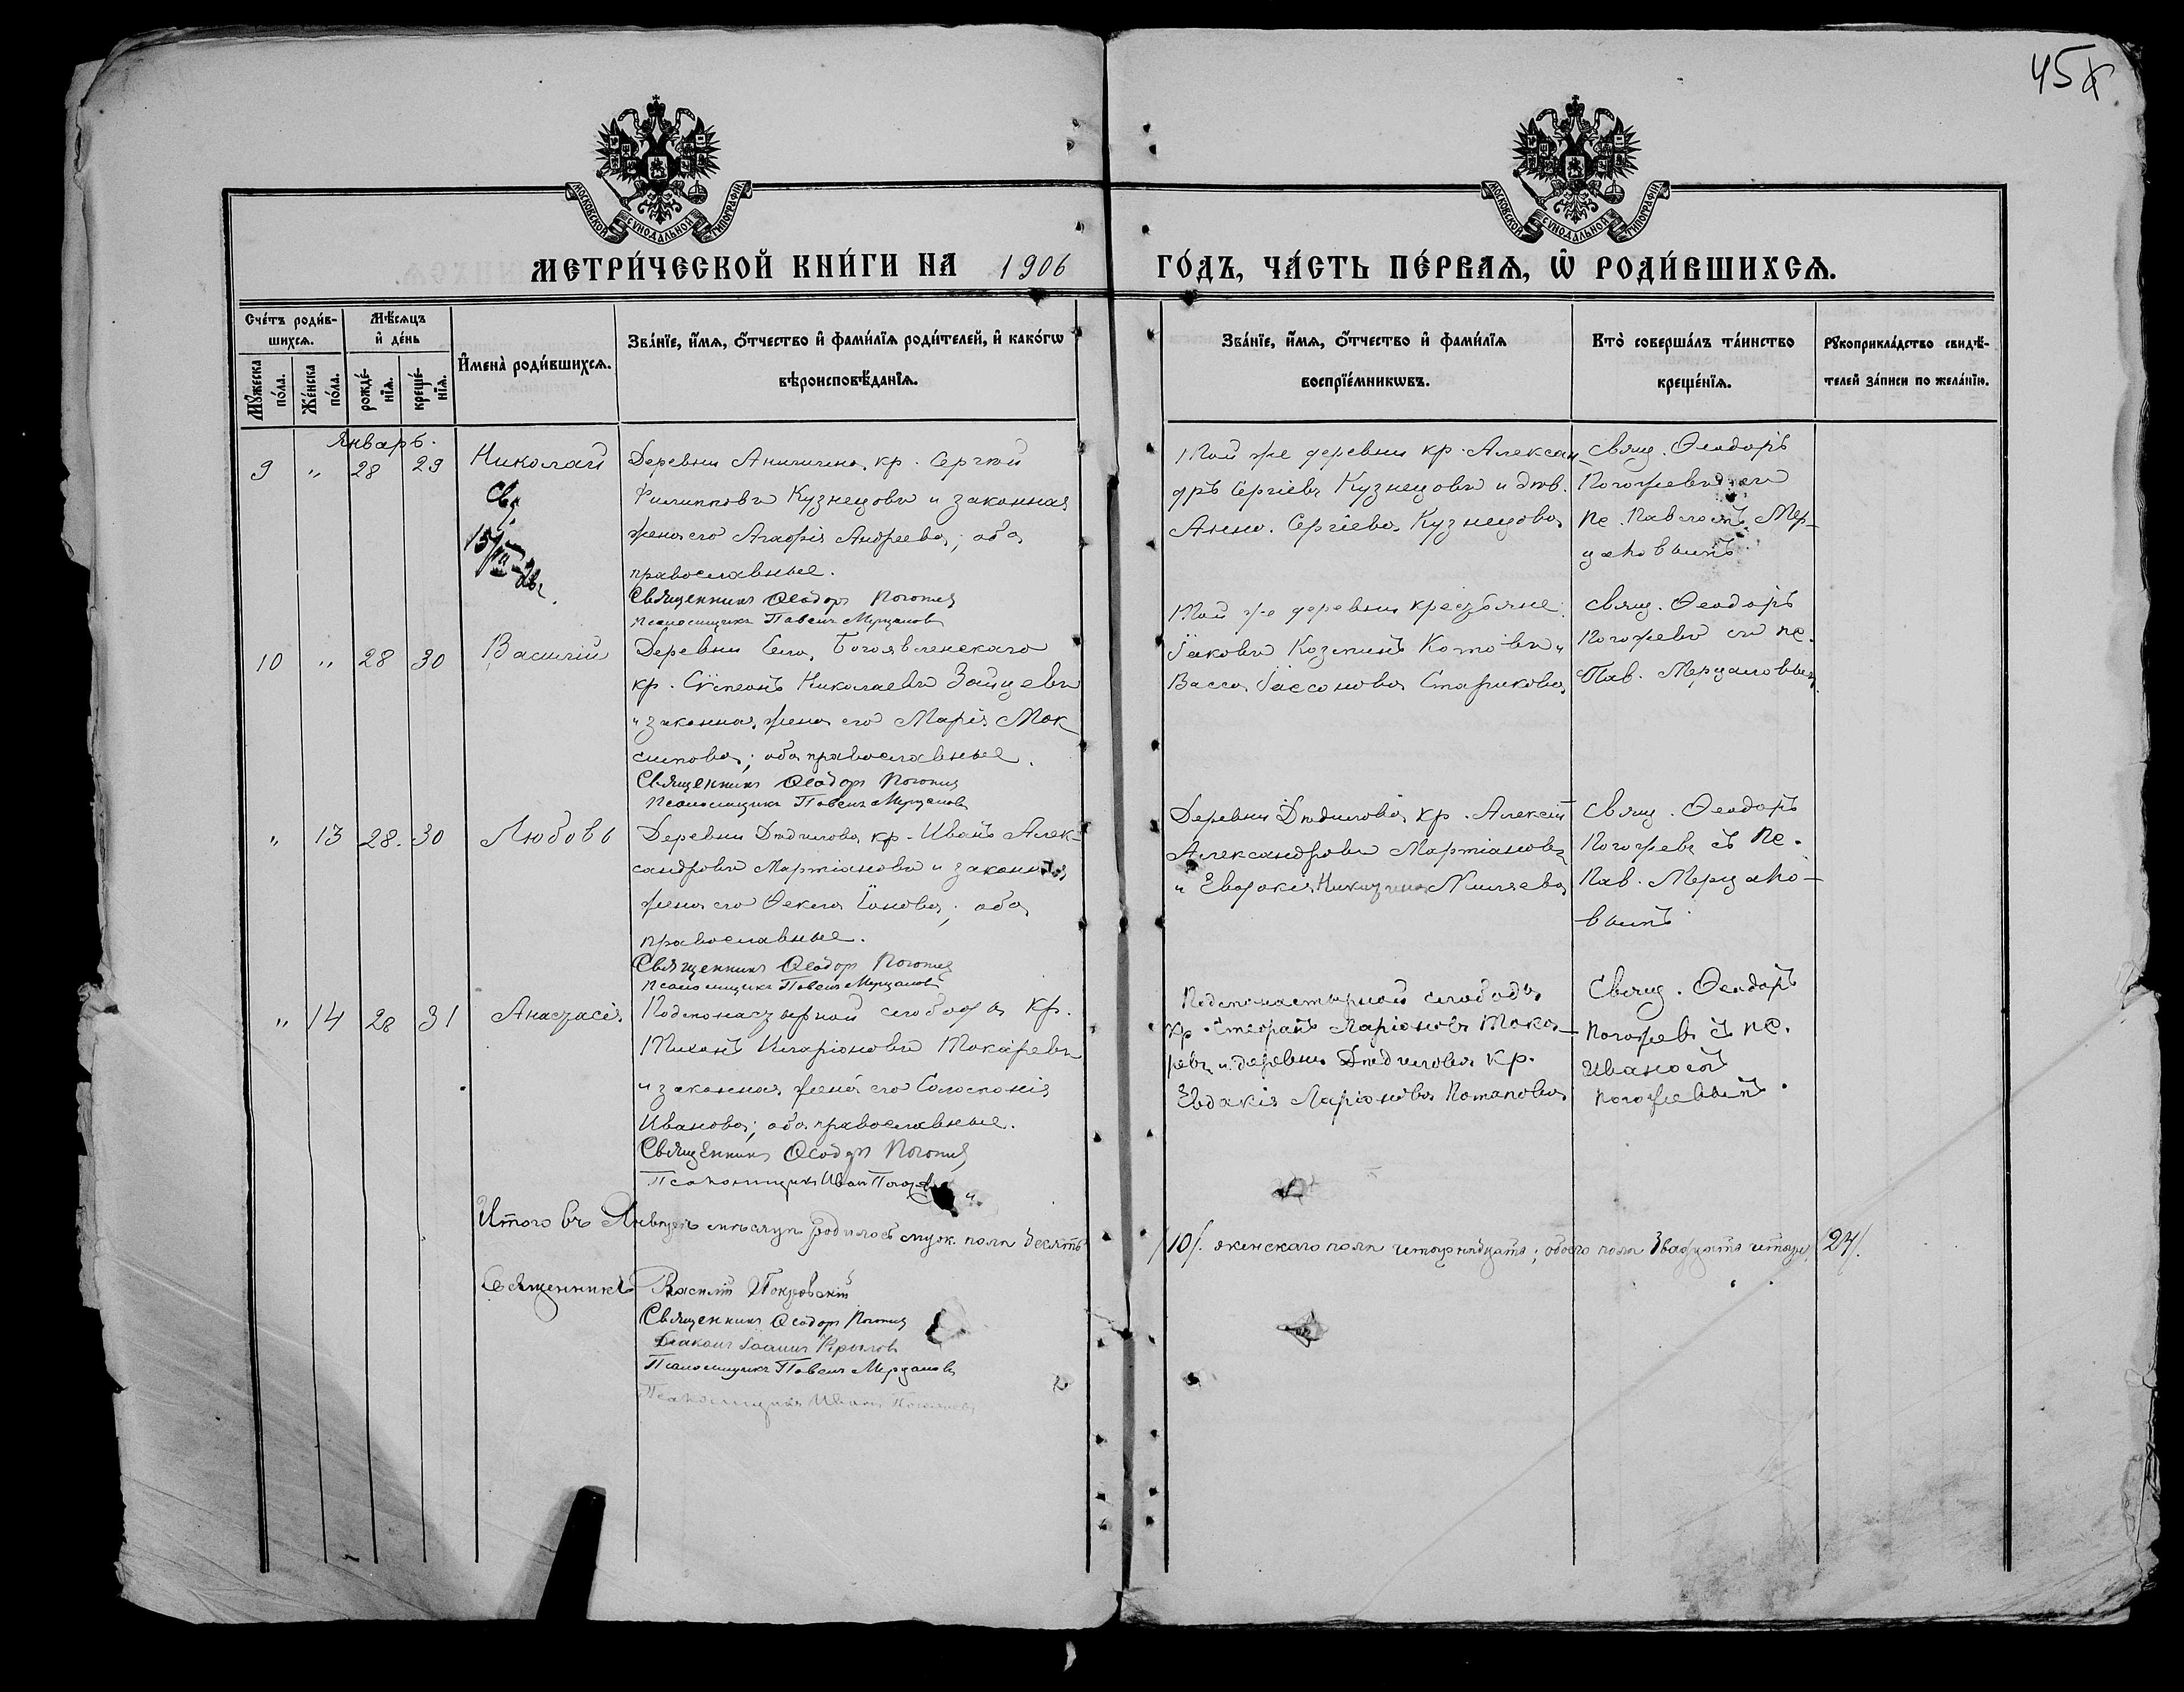 45
МОСКОВСКОЙ СѴНОДАЛЬНОЙ ТИПОГРАФІИ
МОСКОВСКОЙ СѴНОДАЛЬНОЙ ТИПОГРАФІИ
МЕТРИ́ЧЕСКОЙ КНИ́ГИ НА 1906 ГО́ДЪ, ЧА́СТЬ ПЕ́РВАѦ, Ѡ҆ РОДИ́ВШИХСѦ.
Сче́тъ роди́в-
шихсѧ.
Мꙋ́жеска
по́ла.
Же́нска
по́ла.
Мѣ́сѧцъ
и҆ де́нь
рожде́-
нїѧ.
креще́-
нїѧ.
И҆мена̀ роди́вшихсѧ.
Зва́нїе, и҆́мѧ, ѻ҆́тчество и҆ фами́лїѧ роди́телей, и҆ како́гѡ
вѣроисповѣ́данїѧ.
Зва́нїе, и҆́мѧ, ѻ҆́тчество и҆ фами́лїѧ
воспрїе́мникѡвъ.
Кто̀ соверша́лъ та́инство
креще́нїѧ.
Рꙋкоприкла́дство свидѣ́-
телей за́писи по жела́нїю.
Январь.
9 " 28 29 Николай
Деревни Аничкина, кр. Сергѣй
Филипповъ Кузнецовъ и законная
жена его Агафія Андреева; оба
православные.
Священникъ Ѳеодоръ Погожевъ
Псаломщикъ Павелъ Мерцаловъ
Той же деревни кр. Алексан
дръ Сергіевъ Кузнецовъ и дѣв.
Анна Сергіева Кузнецова
Свящ. Ѳеодоръ
Погожевъ съ
Пс. Павломъ Мер-
цаловымъ
10 " 28 30 Василій
Деревни Села Богоявленскаго
кр. Сѵмеонъ Николаевъ Зайцевъ
и законная жена его Марія Мак
симова; оба православные.
Священникъ Ѳеодоръ Погожевъ
Псаломщикъ Павелъ Мерцаловъ
Той же деревни крестьяне:
Іаковъ Козминъ Котовъ и
Васса Іассонова Старикова
Свящ. Ѳеодоръ
Погожевъ съ пс.
Пав. Мерцаловым.
" 13 28. 30 Любовь
Деревни Дѣдилова кр. Иванъ Алек-
сандровъ Мартіановъ и законная
жена его Ѳекла Іонова; оба
православные.
Священникъ Ѳеодоръ Погожевъ
Псаломщикъ Павелъ Мерцаловъ
Деревни Дѣдилова кр. Алексѣй
Александровъ Мартіановъ
и Евдокія
Свящ. Ѳеодоръ
Погожевъ съ Пс.
Пав. Мерцало-
вымъ
" 14 28 31 Анастасія
Подмонастырной слободы кр.
Тихонъ Иларіоновъ Токаревъ
и законная жена его Соломонія
Иванова; оба православные.
Священникъ Ѳеодоръ Погожевъ
Псаломщикъ Иванъ Погожевъ
Подмонастырной слободы
кр. Стефанъ Ларіоновъ Тока-
ревъ и деревни Дѣдилова кр.
Евдакія Ларіонова Потапова
Свящ. Ѳеодоръ
Погожевъ съ пс.
Иваномъ
Погожевымъ.
Итого въ Январѣ мѣсяцѣ родилось муж. пола десять /10/. женскаго пола четырнадцать; обоего пола двадцать четыре /24/.
Священникъ Василій Покровскій
Священникъ Ѳеодоръ Погожевъ
Діаконъ Іоаннъ Крылов
Псаломщикъ Павелъ Мерцаловъ
Псаломщикъ Иванъ Погожевъ